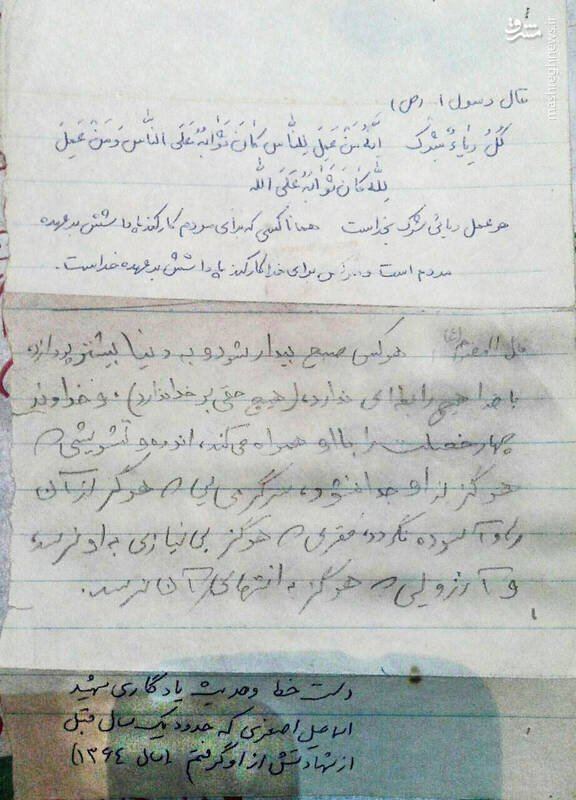 مشرق
mashreghnews.ir
قال رسول ا... (ص)
كُلُ رِياءٌ شِرْك اِنَّهُ مَنْ عَمِلَ لِلنّاسِ كانَ ثَوابُهُ عَلَى النّاسِ وَ مَنْ عَمِلَ
لِلّهِ كانَ ثَوابُهُ عَلَى اللّه
هر عمل ریائی شرک بخداست همانا کسی که برای مردم کار کند پاداشش بر عهده
مردم است و هرکس برای خدا کار کند پاداشش بر عهده خداست.
قال هرکس صبح بیدار شود و به دنیا بیشتر پردازد
با خدا هیچ رابطه‌ای ندارد، (هیچ حقی بر خدا ندارد)، و خداوند
چهار خصلت را با او همراه می‌کند، اندوه و تشویشی که
هرگز از او جدا نشود، سرگرمی‌یی که هرگز از آن
رها و آسوده نگردد، فقری که هرگز بی نیازی به او نرسد،
و آرزویی که هرگز به انتهای آن نرسد.
دست خط و حدیث یادگاری شهید
اسماعیل اصغری که حدود یک سال قبل
از شهادتش از او گرفتم (سال ۱۳۶۴)